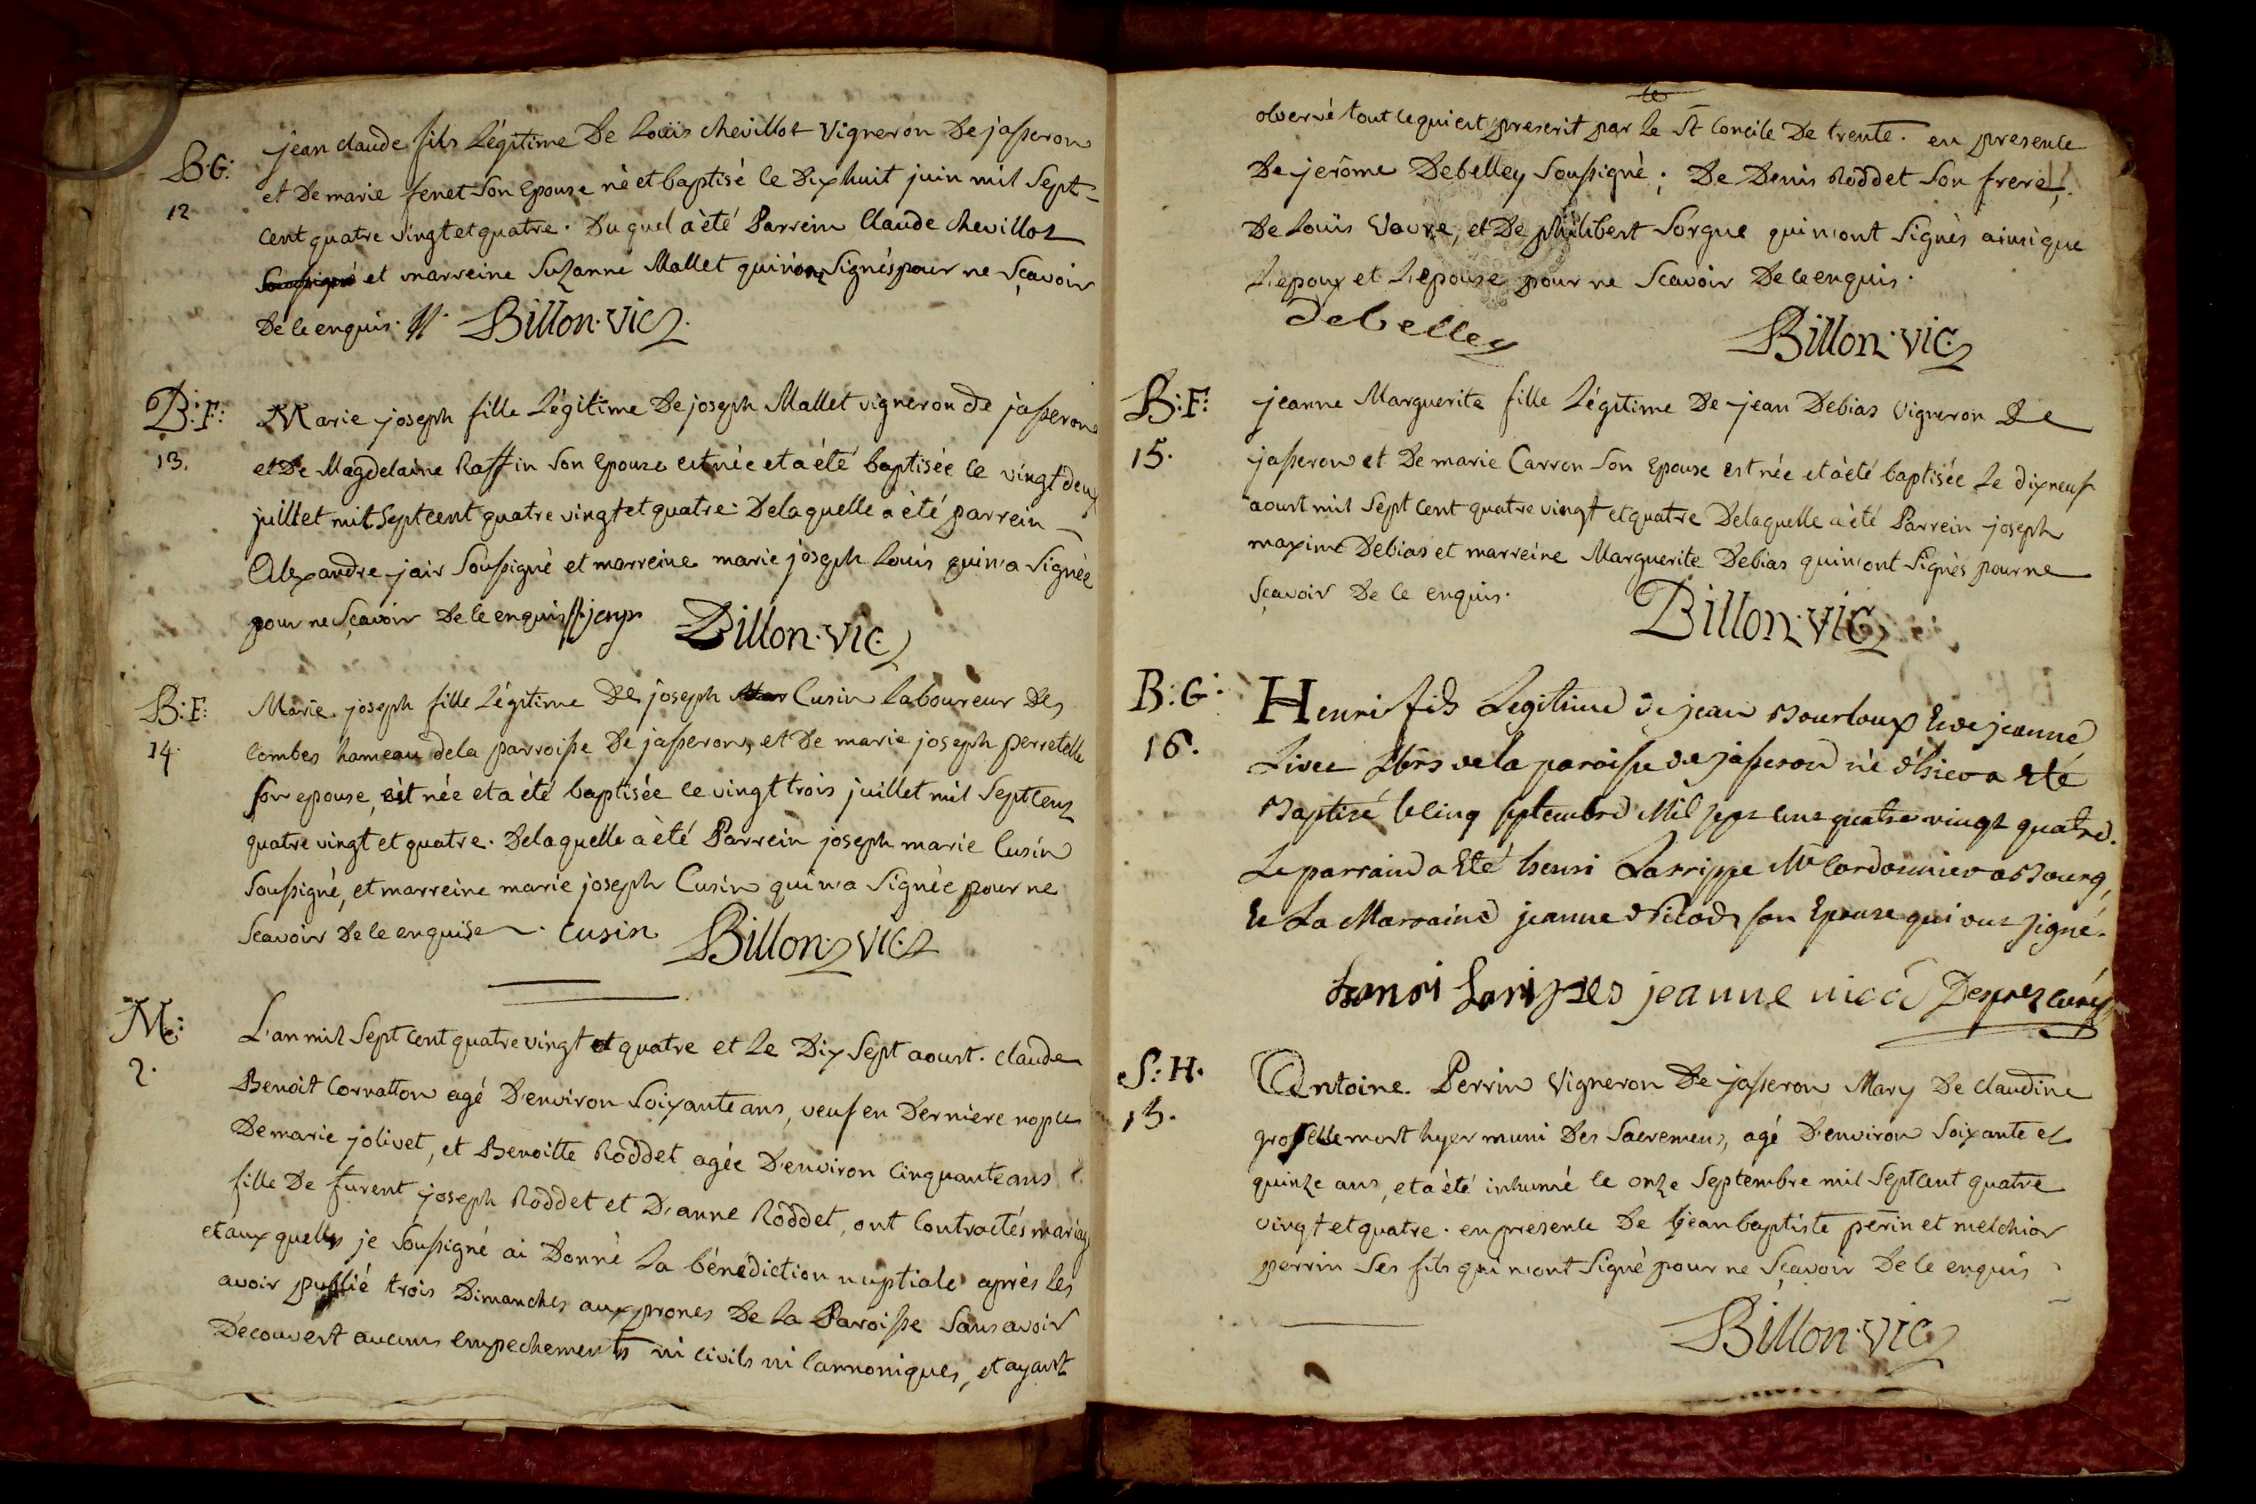 B:G:
12
jean claude fils Légitime De Louis chevillot Vigneron De jasseron
et De marie fenet Son Epouse né et baptisé le Dixhuit juin mil Sept=
cent quatre vingt et quatre. Du quel a été Parrein Claude chevillot
Soussigné et marreine Suzanne Mallet qui n'ont Signés pour ne Sçavoir
De ce enquis. Billon. vic.
B:F:
13.
Marie joseph fille Légitime De joseph Mallet vigneron de jasseron
et De Magdelaine Raffin Son Epouse est née et a été baptisée le vingt deux
juillet mil Sept cent quatre vingt et quatre. De laquelle a été parrein
Alexandre jair Soussigné et marreine marie joseph Louis qui n'a Signée
pour ne Sçavoir De ce enquis Billon. vic.
B:F:
14.
Marie joseph fille Légitime De joseph Cusin Laboureur Des
Combes hameau de la parroisse De jasseron, et De marie joseph perretelle
son epouse, est née et a été baptisée le vingt trois juillet mil Sept Cent
quatre vingt et quatre. De laquelle a été Parrein joseph marie Cusin
Soussigné, et marreine marie joseph Cusin qui n'a Signée pour ne
Scavoir De ce enquise. Cusin Billon. vic.
M:
2.
L'an mil Sept cent quatre vingt et quatre et Le Dix Sept aoust. claude
Benoit Cornatton agé D'environ Soixante ans, veuf en Derniere nopces
De marie jolivet, et Benoitte Roddet agée D'environ Cinquante ans
fille De furent joseph Roddet et D'anne Roddet, ont Contractés mariage
et aux quells je Soussigné ai Donné La bénediction nuptiale après les
avoir publié trois Dimanches aux prones De La Paroisse Sans avoir
Decouvert aucuns empechements ni civils ni Cannoniques, et ayant
observé tout ce qui est prescrit par Le St Concile De trente. en presence
De jerôme Debelley Soussigné; De Denis Roddet Son frere,
De Louis Vavre, et De philibert Sorgue qui n'ont Signés ainsi que
L'epoux et L'epouse pour ne Scavoir De ce enquis.
debelley Billon. vic.
B:F:
15.
jeanne Marguerite fille Légitime De jean Debias Vigneron De
jasseron et De marie Carron Son Epouse est née et a été baptisée Le dixneuf
aoust mil Sept Cent quatre vingt et quatre De laquelle a été Parrein joseph
maxime Debias et marreine Marguerite Debias qui n'ont Signés pour ne
Sçavoir De ce enquis. Billon. vic.
B:G:
16.
Henri fils Legitime de jean Bourloux Et de jeanne
de la paroisse de jasseron né d'hier a Eté
Baptisé le cinq septembre Mil sept cent quatre vingt quatre.
Le parrain a Eté henri Larrippe Me Cordonnier a Bourg,
Et La Marraine jeanne Nicod son Epouse qui ont signé.
henri jeanne nicod Desprez curé
S:H.
15.
Antoine Perrin Vigneron De jasseron Mary De claudine
mort hyer muni Des Sacremens, agé D'environ Soixante et
quinze ans, et a été inhumé le onze Septembre mil Sept Cent quatre
vingt et quatre. en presence De jean baptiste perrin et melchior
perrin Ses fils qui n'ont Signé pour ne Sçavoir De ce enquis
Billon. vic.